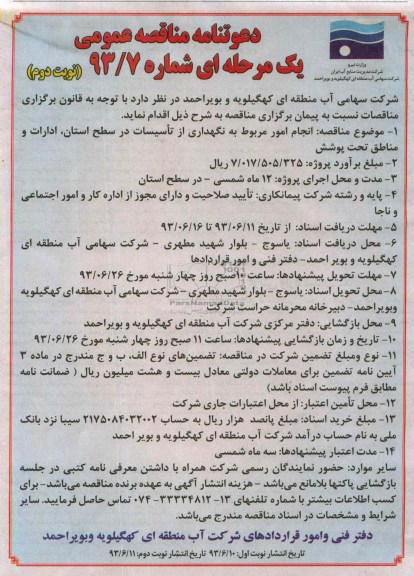 وزارت نیرو
شرکت مدیریت منابع آب ایران
شرکت سهامی آب منطقه ای کهگیلویه و بویراحمد
دعوتنامه مناقصه عمومی
یک مرحله ای شماره ۹۳/۷
(نوبت دوم)
شرکت سهامی آب منطقه ای کهگیلویه و بویراحمد در نظر دارد با توجه به قانون برگزاری
مناقصات نسبت به پیمان برگزاری مناقصه به شرح ذیل اقدام نماید.
۱- موضوع مناقصه: انجام امور مربوط به نگهداری از تأسیسات در سطح استان، ادارات و
مناطق تحت پوشش
۲- مبلغ برآورد پروژه: ۷/۰۱۷/۵۰۵/۳۲۵ ریال
۳- مدت و محل اجرای پروژه: ۱۲ ماه شمسی - در سطح استان
۴- پایه و رشته شرکت پیمانکاری: تأیید صلاحیت و دارای مجوز از اداره کار و امور اجتماعی
و ناجا
۵- مهلت دریافت اسناد: از تاریخ ۹۳/۰۶/۱۱ تا ۹۳/۰۶/۱۶
۶- محل دریافت اسناد: یاسوج - بلوار شهید مطهری - شرکت سهامی آب منطقه ای
کهگیلویه و بویر احمد- دفتر فنی و امور قراردادها
۷- مهلت تحویل پیشنهادها: ساعت ۱۰صبح روز چهار شنبه مورخ ۹۳/۰۶/۲۶
۸- محل تحویل اسناد: یاسوج - بلوار شهید مطهری - شرکت سهامی آب منطقه ای کهگیلویه
وبویراحمد - دبیرخانه محرمانه حراست شرکت
۹- محل بازگشایی: دفتر مرکزی شرکت آب منطقه ای کهگیلویه و بویراحمد
۱۰- تاریخ و زمان بازگشایی پیشنهادها: ساعت ۱۱ صبح روز چهار شنبه مورخ ۹۳/۰۶/۲۶
۱۱- نوع ومبلغ تضمین شرکت در مناقصه: تضمین‌های نوع الف، ب و ج مندرج در ماده ۳
آیین نامه تضمین برای معاملات دولتی معادل بیست و هشت میلیون ریال ( ضمانت نامه
مطابق فرم پیوست اسناد باشد)
۱۲- محل تأمین اعتبار: از محل اعتبارات جاری شرکت
۱۳- مبلغ خرید اسناد: مبلغ پانصد هزار ریال به حساب ۲۱۷۵۰۸۴۰۳۲۰۰۲ سیبا نزد بانک
ملی به نام حساب درآمد شرکت آب منطقه ای کهگیلویه و بویر احمد
۱۴- مدت اعتبار پیشنهادها: سه ماه شمسی
سایر موارد: حضور نمایندگان رسمی شرکت همراه با داشتن معرفی نامه کتبی در جلسه
بازگشایی پاکتها بلامانع می‌باشد - هزینه انتشار آگهی به عهده برنده مناقصه می‌باشد- برای
کسب اطلاعات بیشتر با شماره تلفنهای ۱۳- ۳۳۳۳۴۸۱۲- ۰۷۴ تماس حاصل فرمایید. سایر
شرایط و مشخصات در اسناد مناقصه مندرج می‌باشد.
دفتر فنی وامور قراردادهای شرکت آب منطقه ای کهگیلویه وبویراحمد
تاریخ انتشار نوبت اول: ۹۳/۶/۱۰ تاریخ انتشار نوبت دوم: ۹۳/۶/۱۱